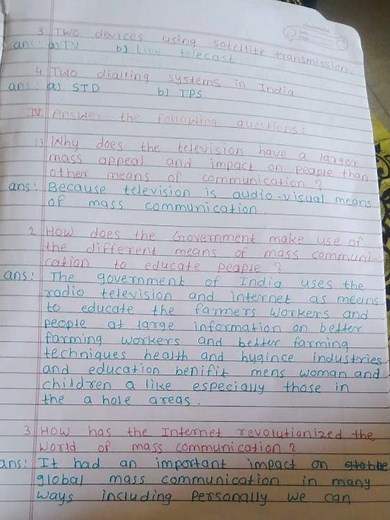 3 Two devices using satellite transmission.
ans: a) TV b) Live telecast
4 Two dialling systems in India
ans: a) STD b) TPS
IV. Answer the following questions:
1) Why does the television have a larger
mass appeal and impact on people than
other means of communication?
ans: Because television is audio-visual means
of mass communication.
2 How does the Government make use of
the different means of mass communi-
cation to educate people?
ans: The government of India uses the
radio television and internet as means
to educate the farmers workers and
people at large information on better
farming workers and better farming
techniques health and hygince industries
and education benifit mens woman and
children a like especially those in
the a hole areas.
3 How has the Internet revolutionized the
World of mass communication?
ans: It had an important impact on
global mass communication in many
ways including personally we can